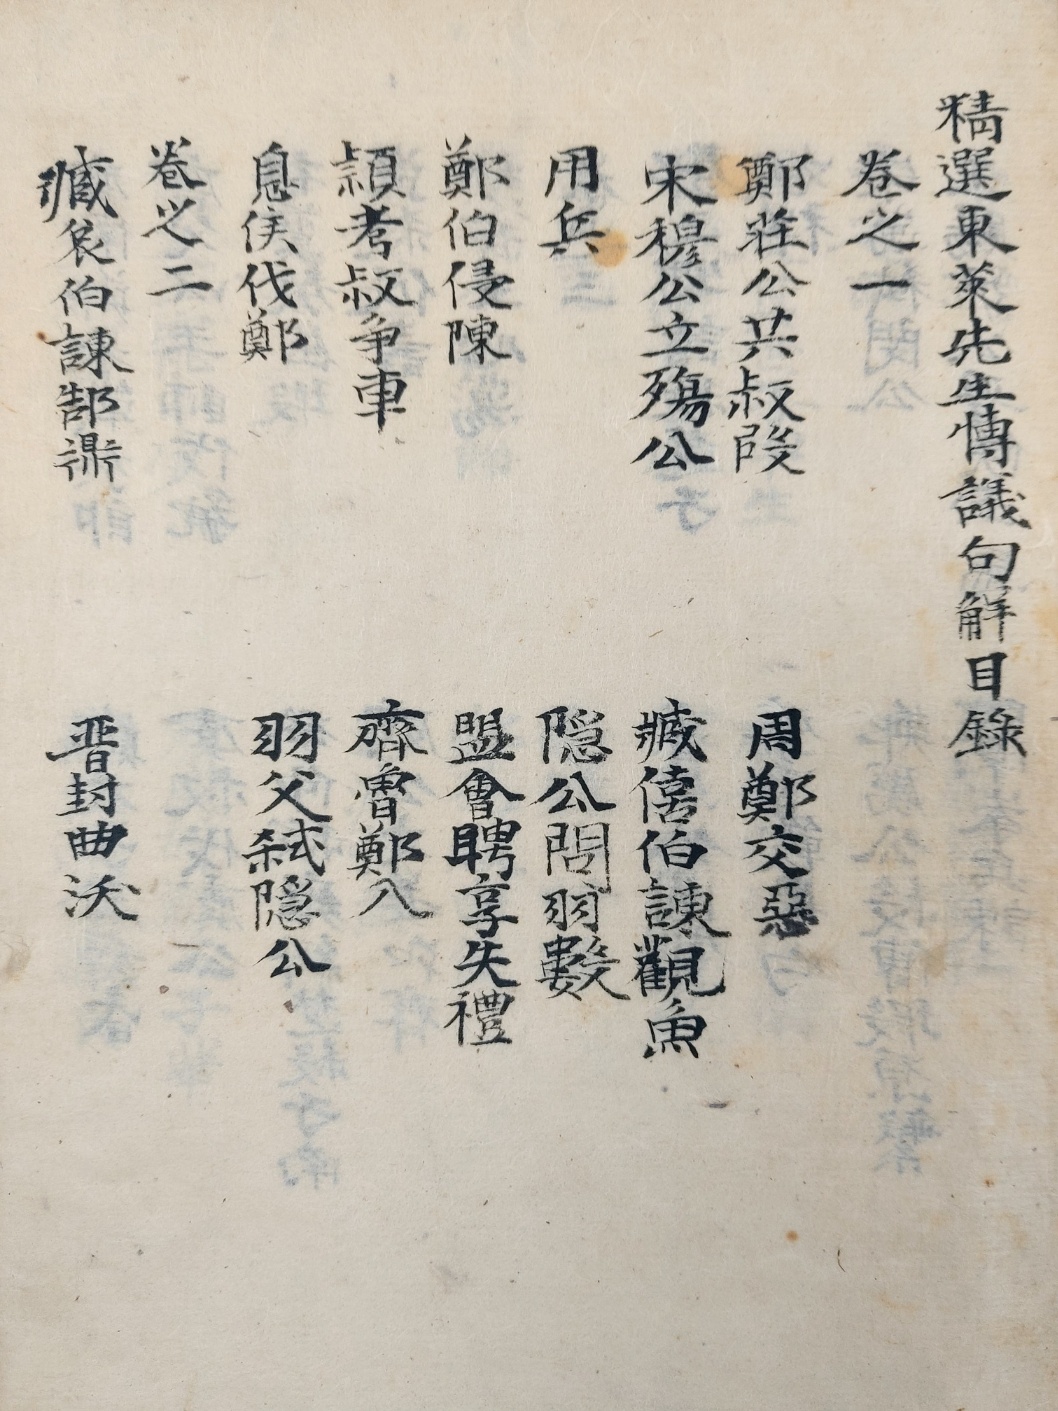 精選東萊先生慱議句解目錄
卷之一
鄭莊公共叔段
周鄭交惡
宋穆公立殤公
臧僖伯諫觀魚
用兵
隠公問羽數
鄭伯侵陳
盟會聘享失禮
頴考叔争車
齊魯鄭入
息侯伐鄭
羽父弑隠公
卷之二
臧哀伯諫郜鼎
晋封曲沃